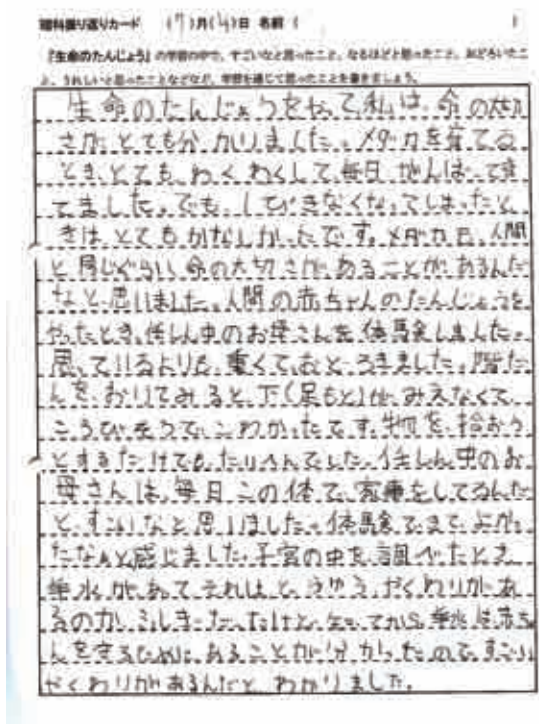 理科振り返りカード (7)月(4)日 名前 ( )
「生命のたんじょう」の学習の中で、すごいなと思ったこと、なるほどと思ったこと、おどろいたこ
と、うれしいと思ったことなどなど、学習を通じて思ったことを書きましょう。
生命のたんじょうをやって私は、命の大切
さがとても分かりました。メダカを育てる
とき、とても、わくわくして、毎日
てました。でも、1ぴきなくなってしまったと
きは、とてもかなしかったです。メダカも、人間
と同じぐらい命の大切さが、あることが、あるんだ
なと思いました。人間の赤ちゃんのたんじょうを
やったとき、任しん中のお母さんを体験しました。
思っているよりも、重くて、おどろきました。階だ
んを、おりてみると、下(足もと)が、みえなくて
こうびそうで、こわかったです。物を、拾おう
とするだけでも、たいへんでした。任しん中のお
母さんは、毎日この体で、家事をしてるんだ
と、すごいなと思いました。体験できて、よかっ
たなんと感じました。子宮の中を調べたとき
羊水があって、それはどうゆう、やくわりがあ
るのか、ふしぎだった。だけど、羊水は赤ちゃ
んを守るために、あることが分かったので、すごい
やくわりがあるんだと、わかりました。